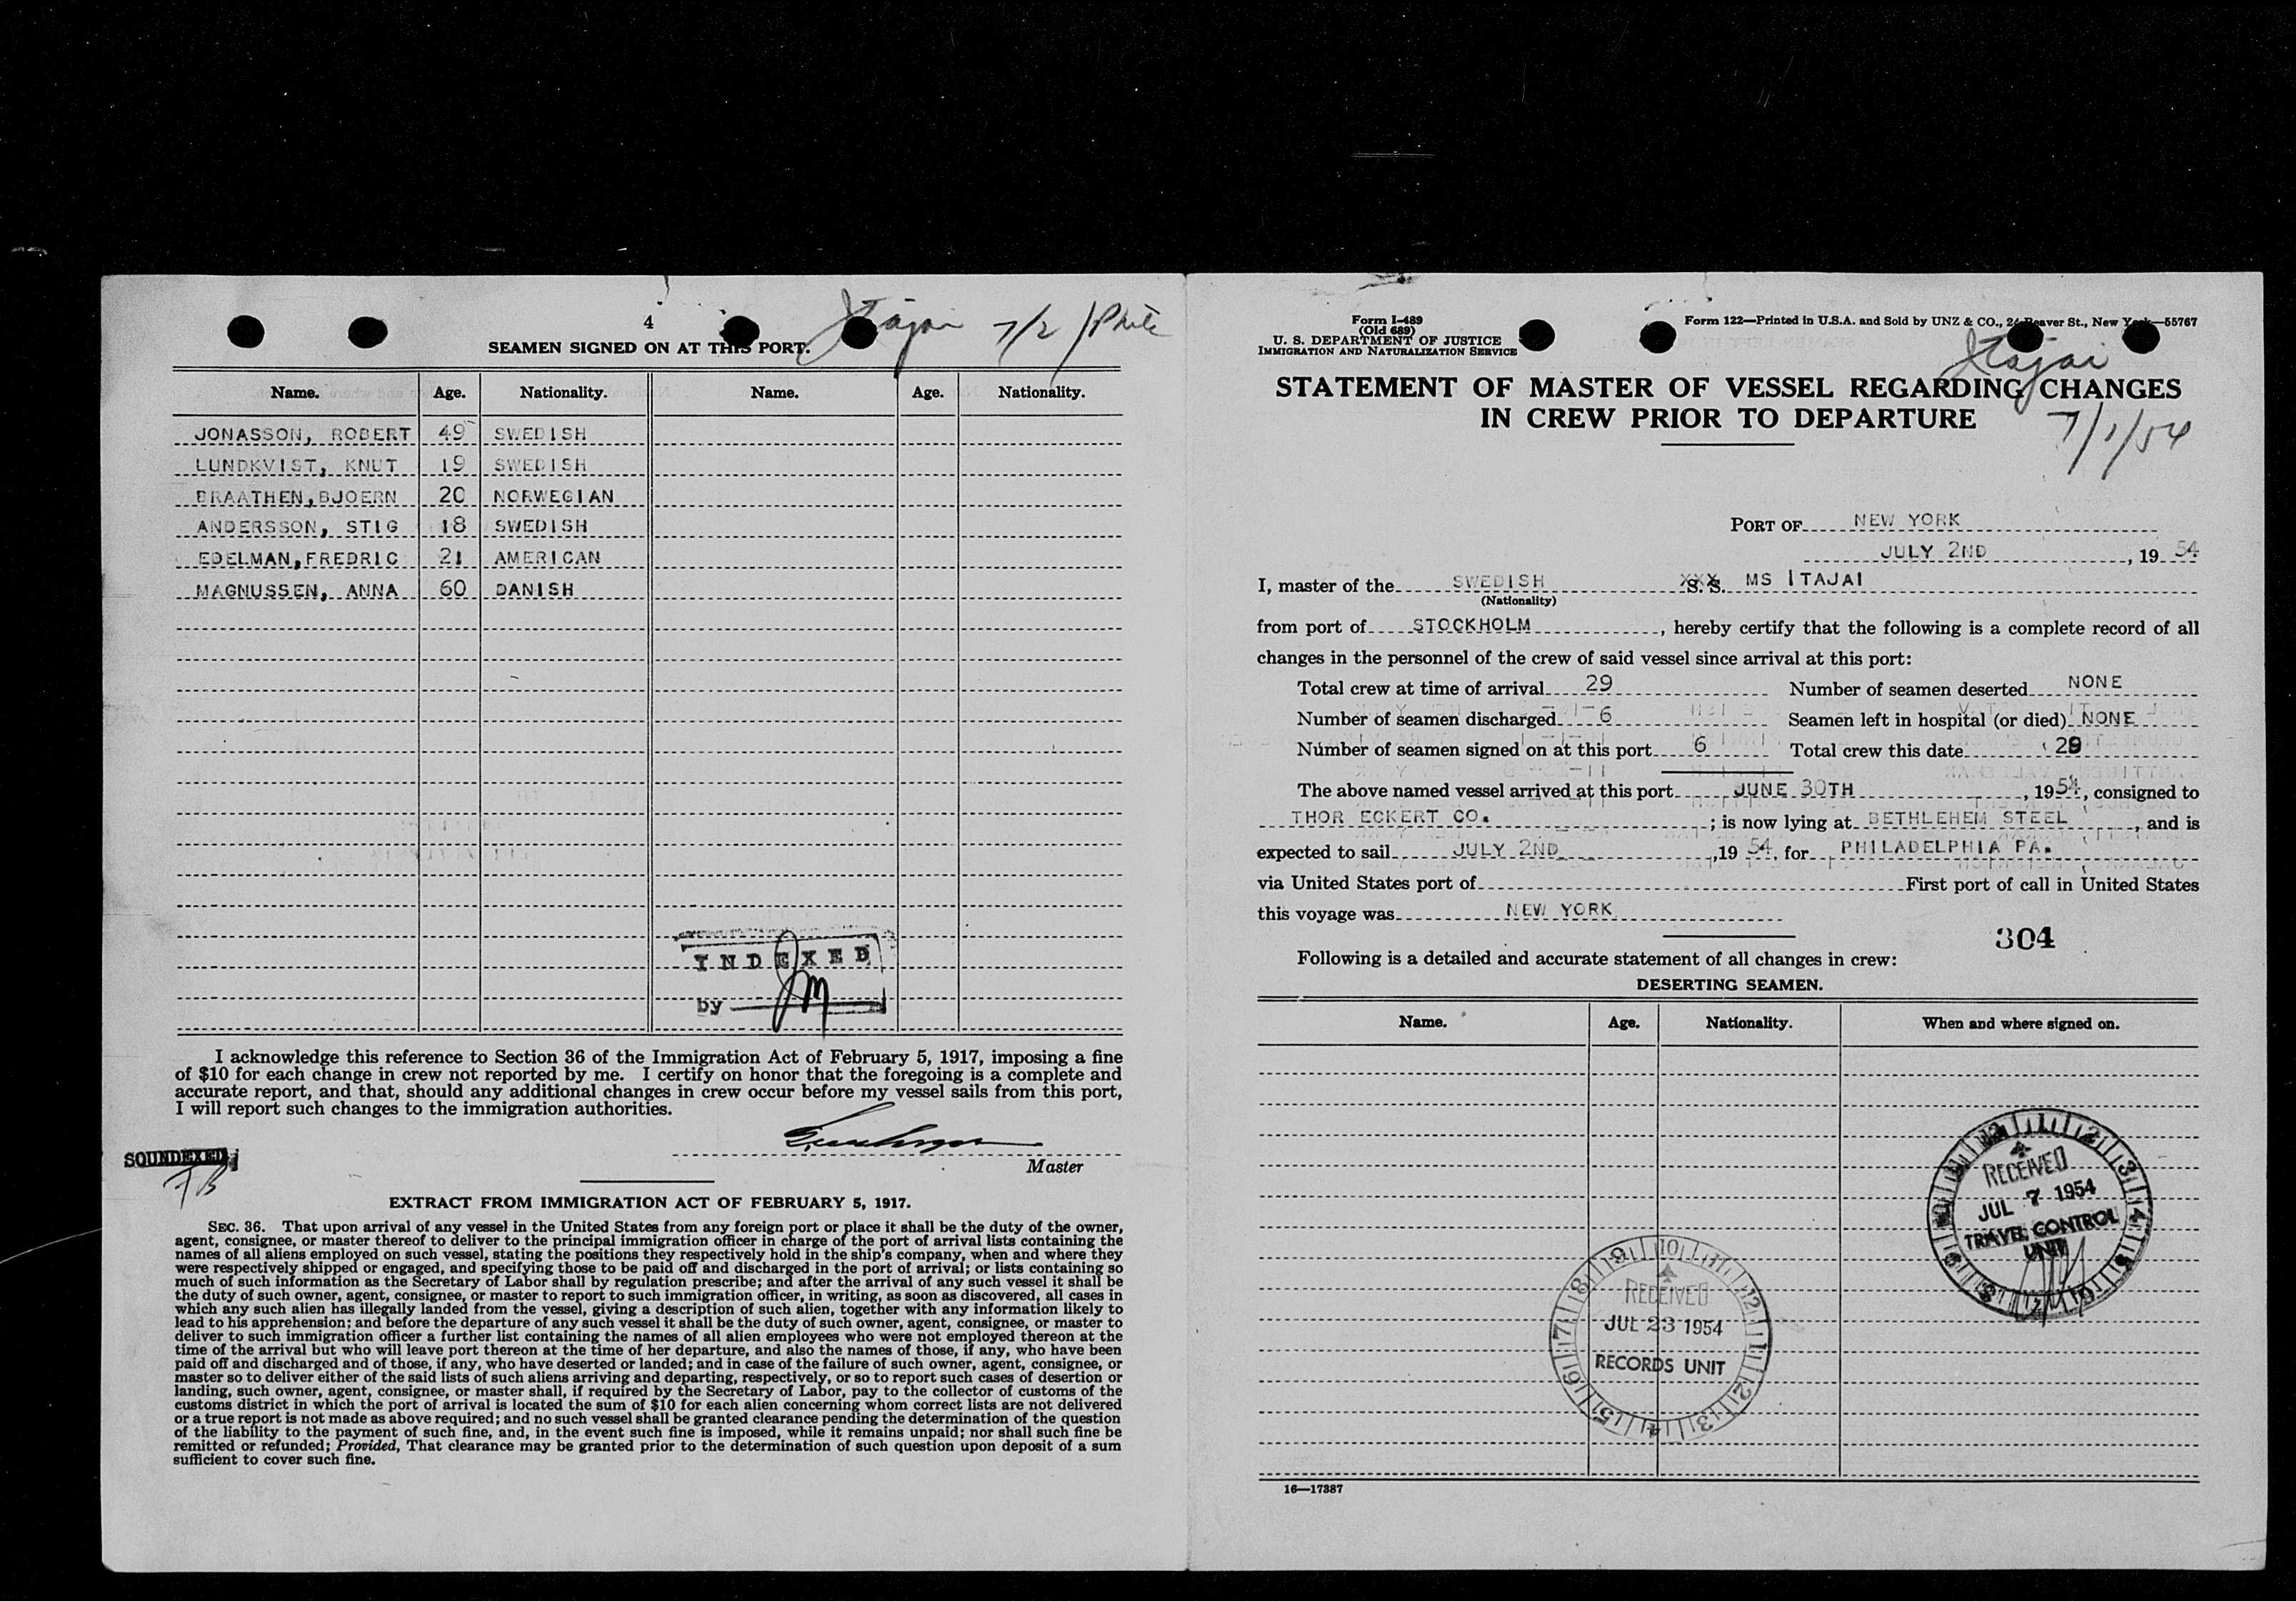 4
Itajai 7/2 / Phila
SEAMEN SIGNED ON AT THIS PORT.
Name. Age. Nationality. Name. Age. Nationality.
JONASSON, ROBERT 49 SWEDISH
LUNDKVIST, KNUT 19 SWEDISH
BRAATHEN, BJOERN 20 NORWEGIAN
ANDERSSON, STIG 18 SWEDISH
EDELMAN, FREDRIC 21 AMERICAN
MAGNUSSEN, ANNA 60 DANISH
INDEXED
by JM
I acknowledge this reference to Section 36 of the Immigration Act of February 5, 1917, imposing a fine
of $10 for each change in crew not reported by me. I certify on honor that the foregoing is a complete and
accurate report, and that, should any additional changes in crew occur before my vessel sails from this port,
I will report such changes to the immigration authorities.
Master
SOUNDEXED
FB
EXTRACT FROM IMMIGRATION ACT OF FEBRUARY 5, 1917.
SEC. 36. That upon arrival of any vessel in the United States from any foreign port or place it shall be the duty of the owner,
agent, consignee, or master thereof to deliver to the principal immigration officer in charge of the port of arrival lists containing the
names of all aliens employed on such vessel, stating the positions they respectively hold in the ship's company, when and where they
were respectively shipped or engaged, and specifying those to be paid off and discharged in the port of arrival; or lists containing so
much of such information as the Secretary of Labor shall by regulation prescribe; and after the arrival of any such vessel it shall be
the duty of such owner, agent, consignee, or master to report to such immigration officer, in writing, as soon as discovered, all cases in
which any such alien has illegally landed from the vessel, giving a description of such alien, together with any information likely to
lead to his apprehension; and before the departure of any such vessel it shall be the duty of such owner, agent, consignee, or master to
deliver to such immigration officer a further list containing the names of all alien employees who were not employed thereon at the
time of the arrival but who will leave port thereon at the time of her departure, and also the names of those, if any, who have been
paid off and discharged and of those, if any, who have deserted or landed; and in case of the failure of such owner, agent, consignee, or
master so to deliver either of the said lists of such aliens arriving and departing, respectively, or so to report such cases of desertion or
landing, such owner, agent, consignee, or master shall, if required by the Secretary of Labor, pay to the collector of customs of the
customs district in which the port of arrival is located the sum of $10 for each alien concerning whom correct lists are not delivered
or a true report is not made as above required; and no such vessel shall be granted clearance pending the determination of the question
of the liability to the payment of such fine, and, in the event such fine is imposed, while it remains unpaid; nor shall such fine be
remitted or refunded; Provided, That clearance may be granted prior to the determination of such question upon deposit of a sum
sufficient to cover such fine.
Form I-489
(Old 689)
U. S. DEPARTMENT OF JUSTICE
IMMIGRATION AND NATURALIZATION SERVICE
Form 122—Printed in U.S.A. and Sold by UNZ & CO., 24 Beaver St., New York—55767
Itajai
STATEMENT OF MASTER OF VESSEL REGARDING CHANGES
IN CREW PRIOR TO DEPARTURE
7/1/54
PORT OF NEW YORK
JULY 2ND, 19 54
I, master of the SWEDISH XXX S. S. MS ITAJAI
(Nationality)
from port of STOCKHOLM, hereby certify that the following is a complete record of all
changes in the personnel of the crew of said vessel since arrival at this port:
Total crew at time of arrival 29 Number of seamen deserted NONE
Number of seamen discharged 6 Seamen left in hospital (or died) NONE
Number of seamen signed on at this port 6 Total crew this date 29
The above named vessel arrived at this port JUNE 30TH, 1954, consigned to
THOR ECKERT CO. ; is now lying at BETHLEHEM STEEL, and is
expected to sail JULY 2ND, 19 54, for PHILADELPHIA PA.
via United States port of First port of call in United States
this voyage was NEW YORK
304
Following is a detailed and accurate statement of all changes in crew:
DESERTING SEAMEN.
Name. Age. Nationality. When and where signed on.
RECEIVED
JUL 7 1954
TRAVEL CONTROL
UNIT
RECEIVED
JUL 23 1954
RECORDS UNIT
16—17387